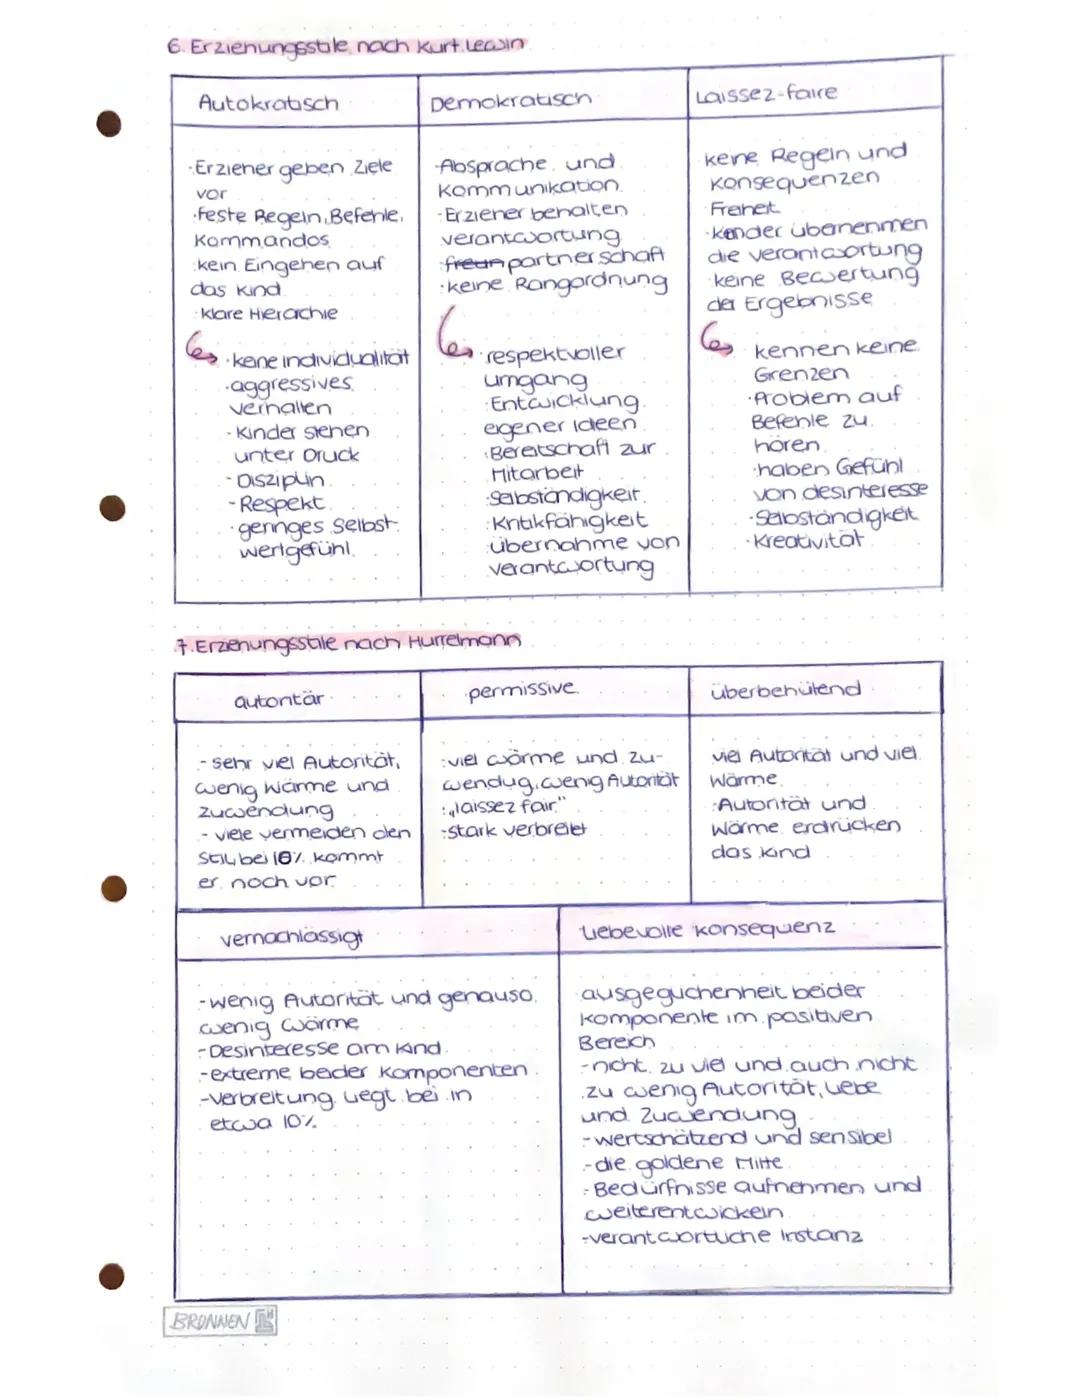 6. Erziehungsstile nach Kurt Lewin
Autokratisch
·Erzieher geben Ziele
vor
·feste Regeln, Befehle,
Kommandos
·kein Eingehen auf
das Kind
·klare Hierachie
·keine individualität
·aggressives
verhalten
·Kinder stehen
unter Druck
·Disziplin
-Respekt
·geringes Selbst
wertgefühl
Demokratisch
·Absprache und
Kommunikation
·Erzieher behalten
verantwortung
·freun partnerschaft
·keine Rangordnung
·respektvoller
umgang
·Entwicklung
eigener Ideen
·Bereitschaft zur
Mitarbeit
·Selbständigkeit
·Kritikfähigkeit
·übernahme von
verantwortung
Laissez-faire
keine Regeln und
Konsequenzen
·Freiheit
·kinder übernehmen
die verantwortung
·keine Bewertung
der Ergebnisse
kennen keine
Grenzen
·Problem auf
Befehle zu
hören
·haben Gefühl
von desinteresse
·Selbständigkeit
·Kreativität
7. Erziehungsstile nach Hurrelmann
autoritär
-sehr viel Autorität,
wenig Wärme und
zuwendung
-viele vermeiden den
Stil, bei 10% kommt
er noch vor
permissive
·viel wärme und zu-
wendug, wenig Autorität
·„laissez fair"
-stark verbreitet
überbehütend
viel Autorität und viel
Wärme
·Autorität und
Wärme erdrücken
das Kind
vernachlässigt
-wenig Autorität und genauso
wenig wärme
-Desinteresse am Kind
-extreme beider Komponenten
-Verbreitung liegt bei in
etwa 10%
Liebevolle Konsequenz
·ausgeglichenheit beider
Komponente im positiven
Bereich
-nicht zu viel und auch nicht
zu wenig Autorität, Liebe
und Zuwendung
-wertschätzend und sensibel
-die goldene Mitte
-Bedürfnisse aufnehmen und
weiterentwickeln
-verantwortliche Instanz
BRUNNEN